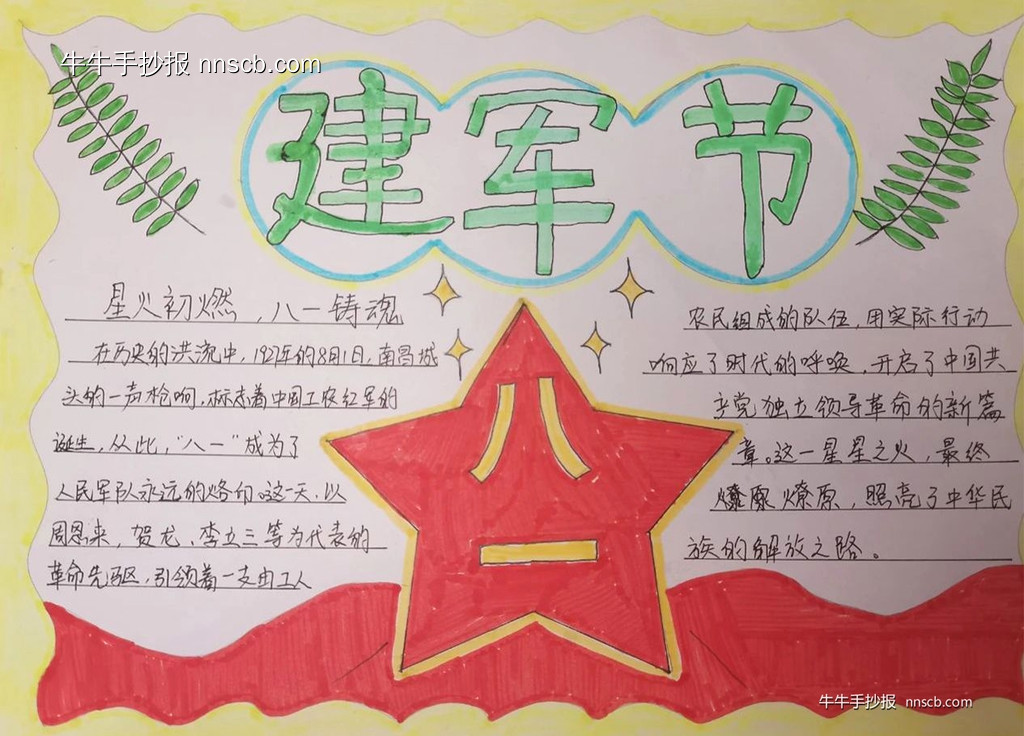 牛牛手抄报 nnscb.com
建军节
星火初燃，八一铸魂
在历史的洪流中，1927年的8月1日，南昌城
头的一声枪响，标志着中国工农红军的
诞生，从此，“八一”成为了
人民军队永远的烙印。这一天，以
周恩来，贺龙、李立三等为代表的
革命先驱，引领着一支由工人
农民组成的队伍，用实际行动
响应了时代的呼唤，开启了中国共
产党独立领导革命的新篇
章。这一星星之火，最终
燎原，照亮了中华民
族的解放之路。
八
一
牛牛手抄报 nnscb.com